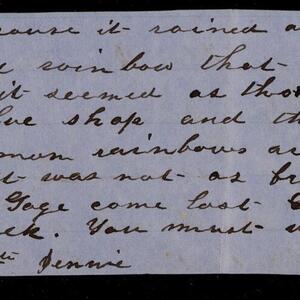 ause it rained a
rainbow that
it seemed as tho
shop and th
mon rainbows a
t was not as b
Gage come last
ek. You must w
Jennie